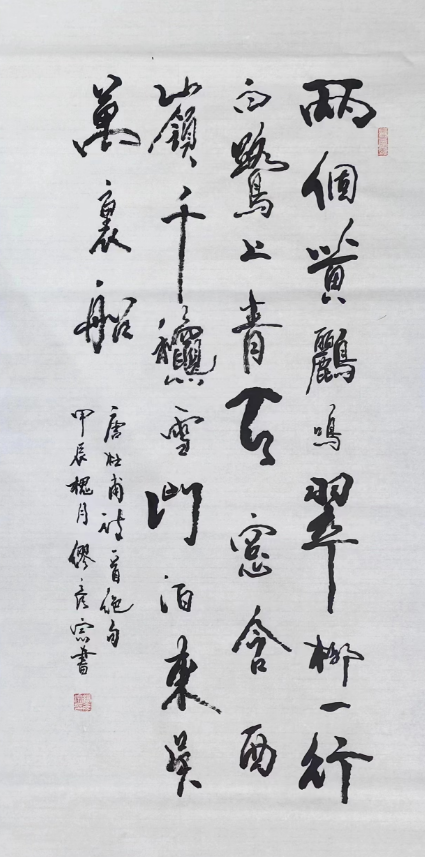 兩個黃鸝鳴翠柳一行
白鷺上青天窓含西
嶺千龝雪門泊東吳
萬裏船
唐杜甫詩一首絶句
甲辰槐月繆彦宗書